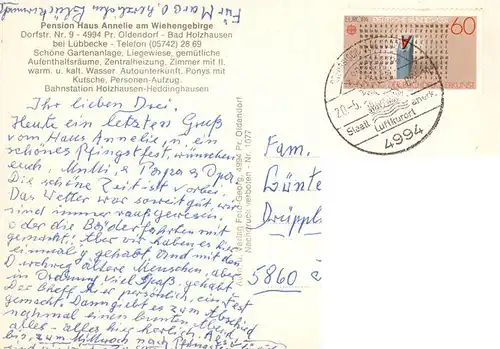 Für Marc 0 herzlichen Glückwunsch
Pension Haus Annelie am Wiehengebirge
Dorfstr. Nr. 9 - 4994 Pr. Oldendorf - Bad Holzhausen
bei Lübbecke - Telefon (05742) 28 69
Schöne Gartenanlage, Liegewiese, gemütliche
Aufenthaltsräume, Zentralheizung, Zimmer mit fl.
warm. u. kalt. Wasser. Autounterkunft. Ponys mit
Kutsche, Personen-Aufzug.
Bahnstation Holzhausen-Heddinghausen
Ihr lieben Drei.
Heute ein letzten Gruß
vom Haus Annelie, u. ein
schönes Pfingstfest, wünschen
euch, Mutti, & Papa & Opa.
Die schöne Zeit ist vorbei.
Das Wetter war soweit gut wir
sind immer rausgewesen.
oder die Bäderfahrten mit
gemacht. Aber wir haben es hier
einmalig gehabt. Und mit den
Durchweg ältere Menschen, aber
in Ordnung viel Spaß gehabt
Der Cheff hier persönlich, ein Fest
gemacht. Dann giebt es zum Abschied
nochmal einen bunten Abend
alles - alles hier herlich. Also
bis, zum Mittwoch nach
Verlag Ferd. Georg, 4994 Pr. Oldendorf
Nachdruck verboten - Nr. 1077
EUROPA
DEUTSCHE BUNDESPOST
60
Staatl. anerk.
Luftkurort
4994
Fam.
5860